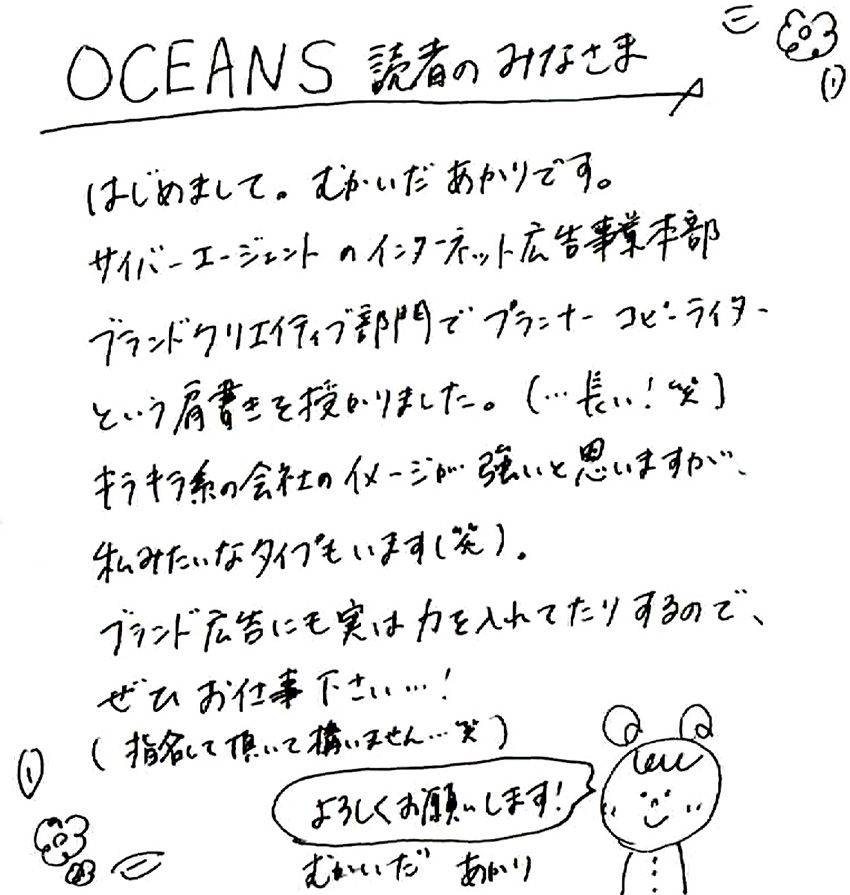 OCEANS 読者の みなさま
はじめまして。むかいだ あかりです。
サイバーエージェントのインターネット広告事業本部
ブランドクリエイティブ部門で プランナー コピーライター
という肩書きを授かりました。(…長い!笑)
キラキラ系の会社のイメージが強いと思いますが、
私みたいなタイプもいます(笑)。
ブランド広告にも実は力を入れてたりするので、
ぜひ お仕事下さい…!
(指名して頂いて構いません…笑)
よろしくお願いします!
むかいだ あかり